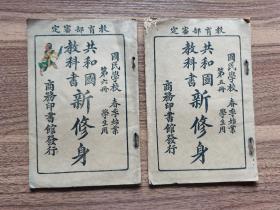 教育部審定
國民學校 春季始業
第六冊 學生用
共和國
教科書
新修身
商務印書館發行
教育部審定
國民學校 春季始業
第五冊 學生用
共和國
教科書
新修身
商務印書館發行